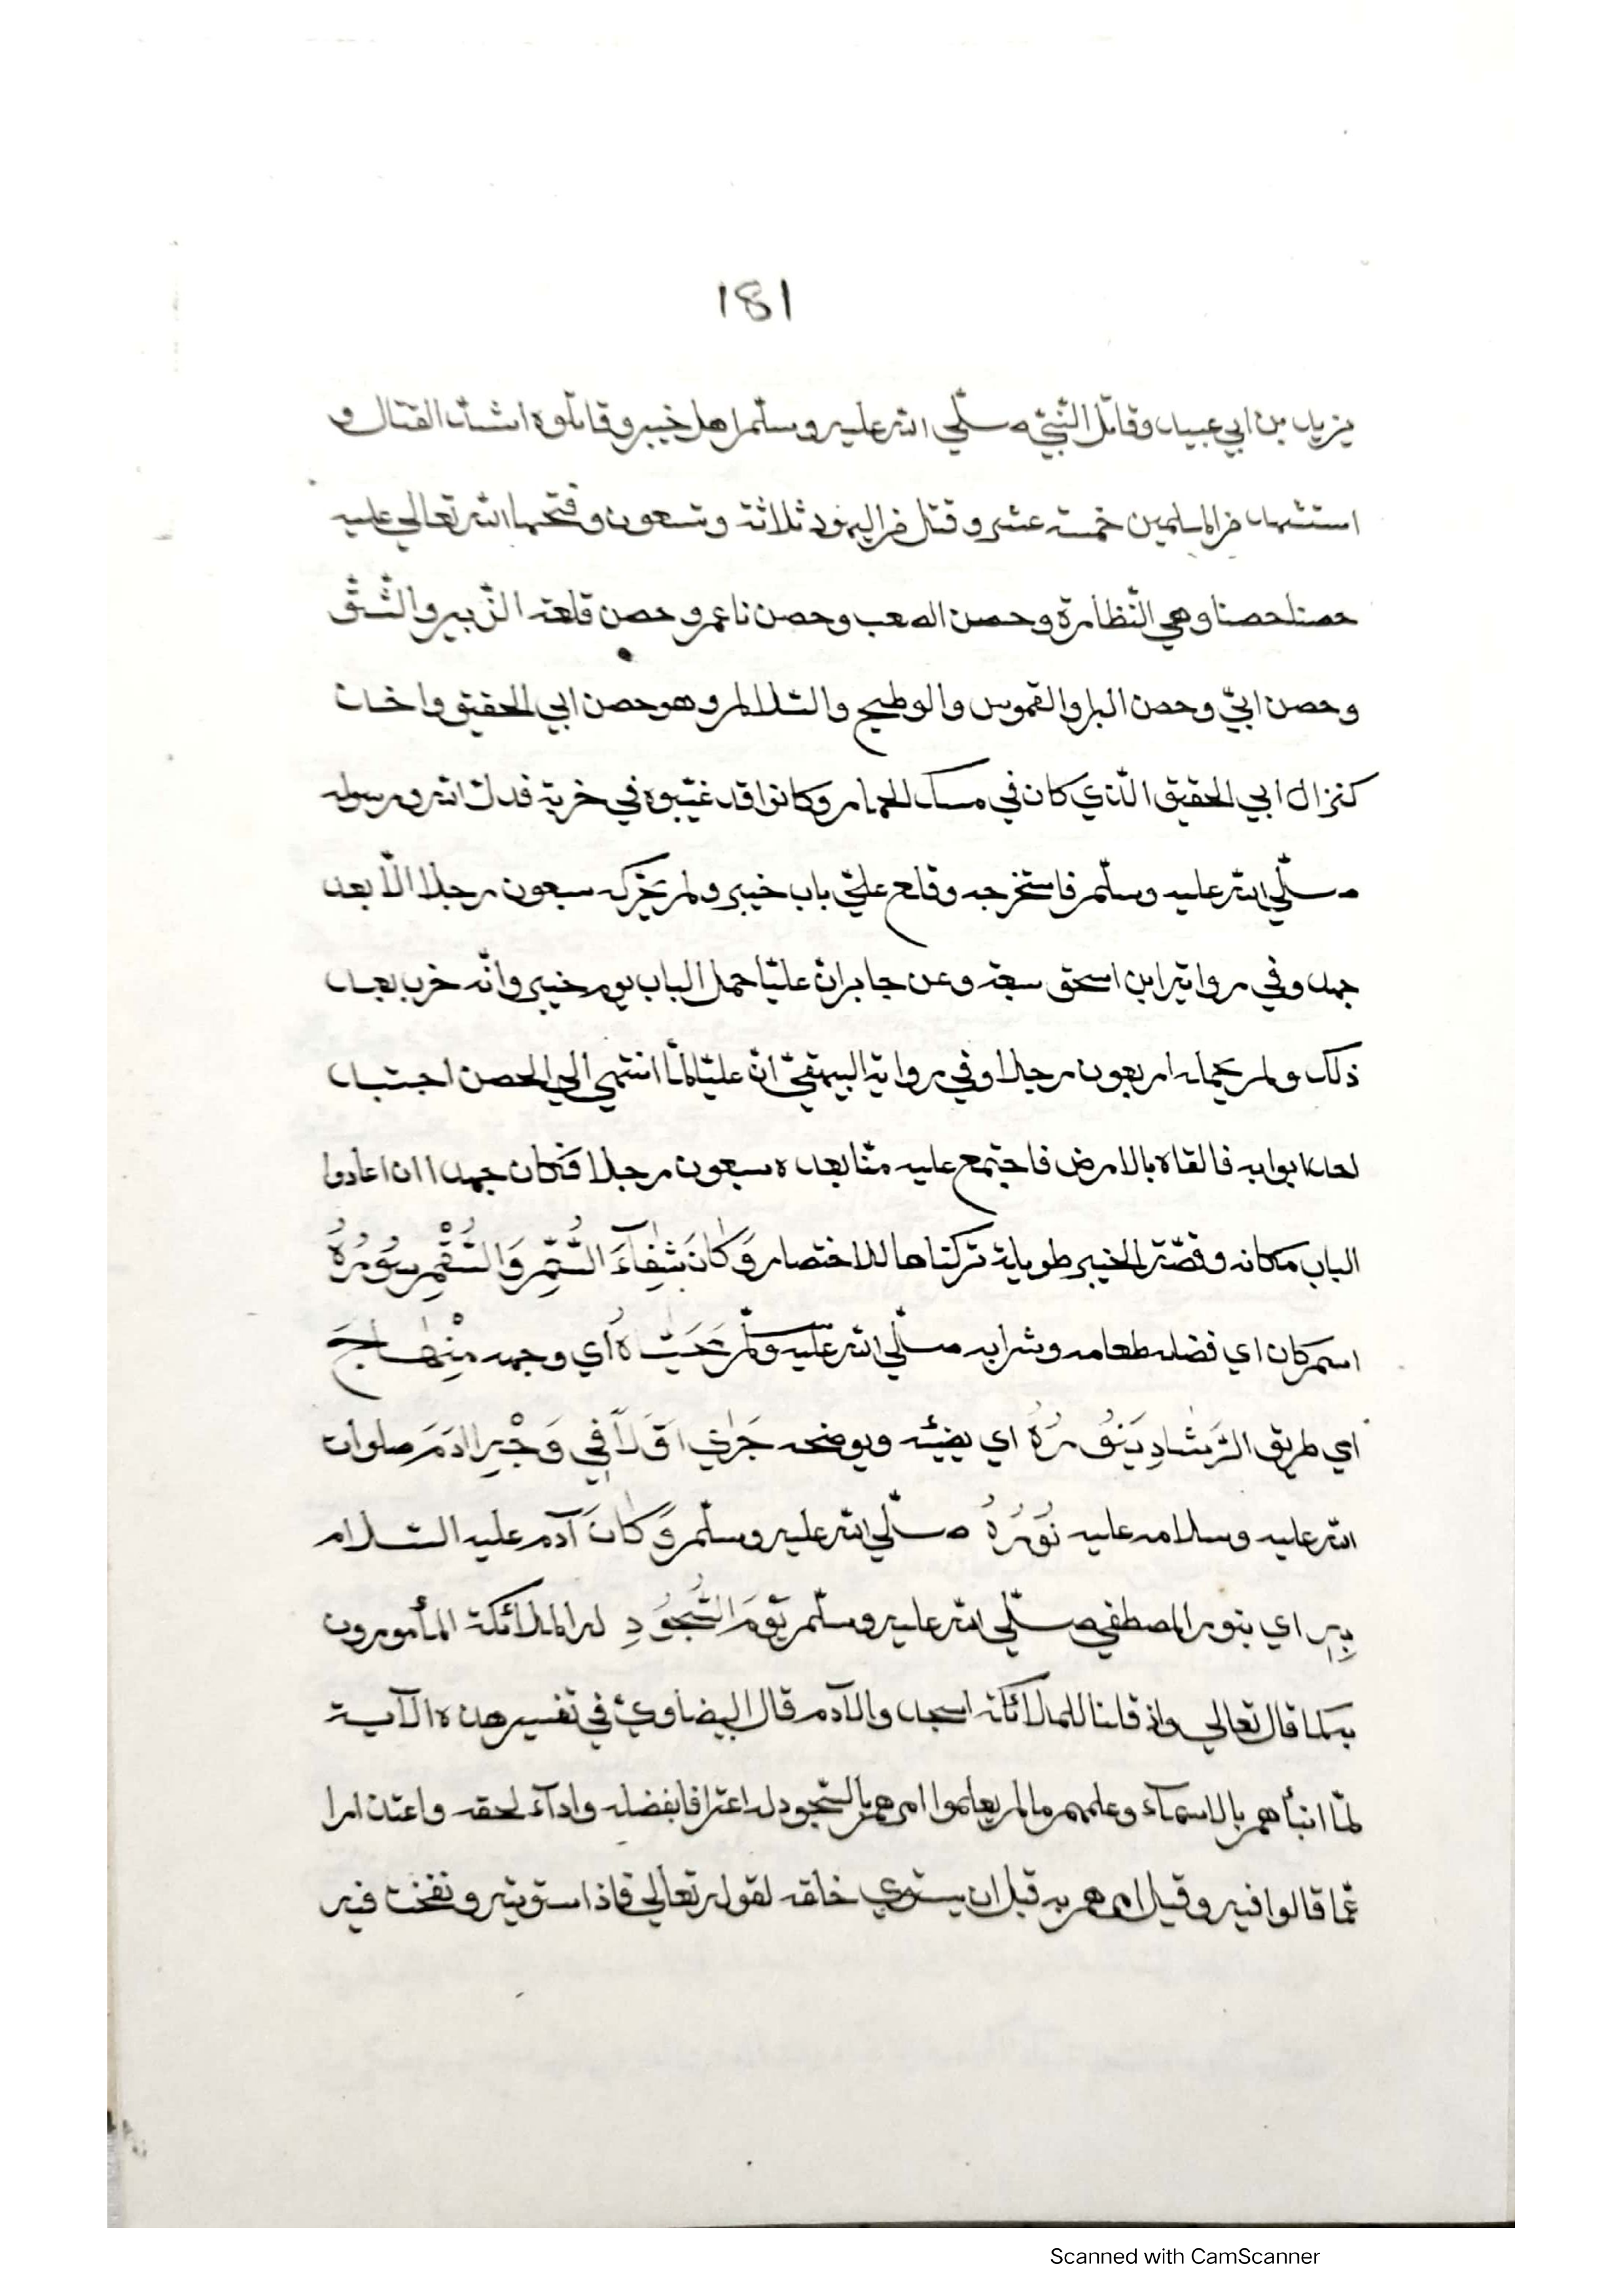 181
يزيد بن ابي عبيد وقاتل النّبيّ صلّي الله عليه وسلّم اهل خيبر وقاتلوه اشدّ القتال و
استشهد من المسلمين خمسة عشر و قتل من اليهود ثلاثة وتسعون وفتحها الله تعالي عليه
حصنا حصنا وهي النّظارة وحصن الصعب وحصن ناعم وحصن قلعة الزّبير والشّقّ
وحصن ابيّ وحصن البراء والقموس والوطيح والسّلالم وهو حصن ابي الحقيق واخذ
كنز ال ابي الحقيق الّذي كان في مسك الحمار وكانوا قد غيّبوه في خربة فدل الله ورسوله
صلّي الله عليه وسلّم فاستخرجه وقلع عليّ باب خيبر ولم يحرّكه سبعون رجلا الّا بعد
جهد وفي رواية ابن اسحق سبعة وعن جابر انّ عليّا حمل الباب يوم خيبر وانّه خرب بعد
ذلك ولم يحمله اربعون رجلا وفي رواية البيهقيّ انّ عليّا لمّا انتهي الي الحصن اجتبد
احد ابوابه فالقاه بالارض فاجتمع عليه منّا بعده سبعون رجلا فكان جهدا ان اعادوا
الباب مكانه وقصّة الخيبر طويلة تركناها للاختصار وَكَانَ شِفَآءَ السُّمِّ وَالسُّقْمِ سُوْرُهُ
اسم كان اي فضلة طعامه وشرابه صلّي الله عليه وسلّم مُحَيَّاهُ اي وجهه مِنْهَاجَ
اي طريق الرَّشَادِ يَنُوْرُهُ اي يضيئه ويوضحه جَرٰي اَوَّلًا فِي وَجْهِ اٰدَمَ صلوات
الله عليه وسلامه عليه نُوْرُهُ صلّي الله عليه وسلّم وَكَانَ آدم عليه السّلام
بِهِ اي بنور المصطفي صلّي الله عليه وسلّم يَوْمَ السُّجُوْدِ له الملائكة المأمورون
به كما قال تعالي واذ قلنا للملائكة اسجدوا لآدم قال البيضاويّ في تفسير هذه الآية
لمّا انبأهم بالاسمآء وعلمهم مالم يعلموا امرهم بالسّجود له اعترافا بفضله واداء لحقه واعتذارا
عمّا قالوا فيه وقيل امرهم به قبل ان يستوي خلقه لقوله تعالي فاذا سوّيته ونفخت فيه
Scanned with CamScanner